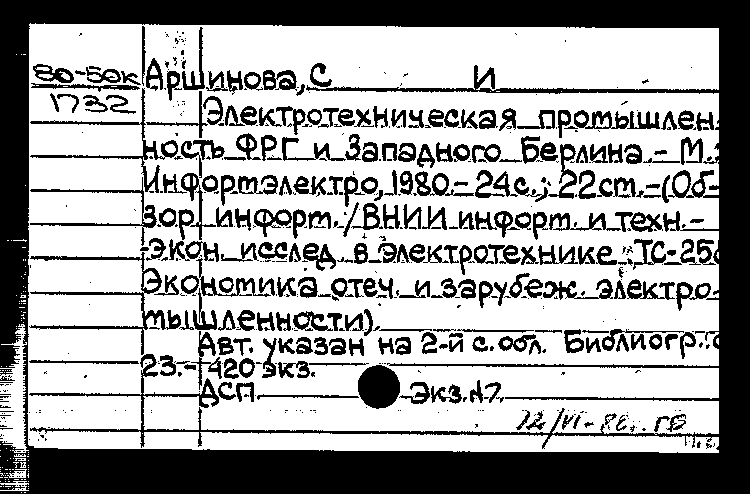 80-50к Аршинова, С И
1732 Электротехническая промышлен-
ность ФРГ и Западного Берлина.- М.:
Информэлектро, 1980.- 24с.; 22см.-(Об-
зор. информ./ВНИИ информ. и техн.-
-экон. исслед. в электротехнике. ТС-25
Экономика отеч. и зарубеж. электро-
мышленности).
Авт. указан на 2-й с. обл. Библиогр.: с
23.- 420 экз.
ДСП. Экз.N7.